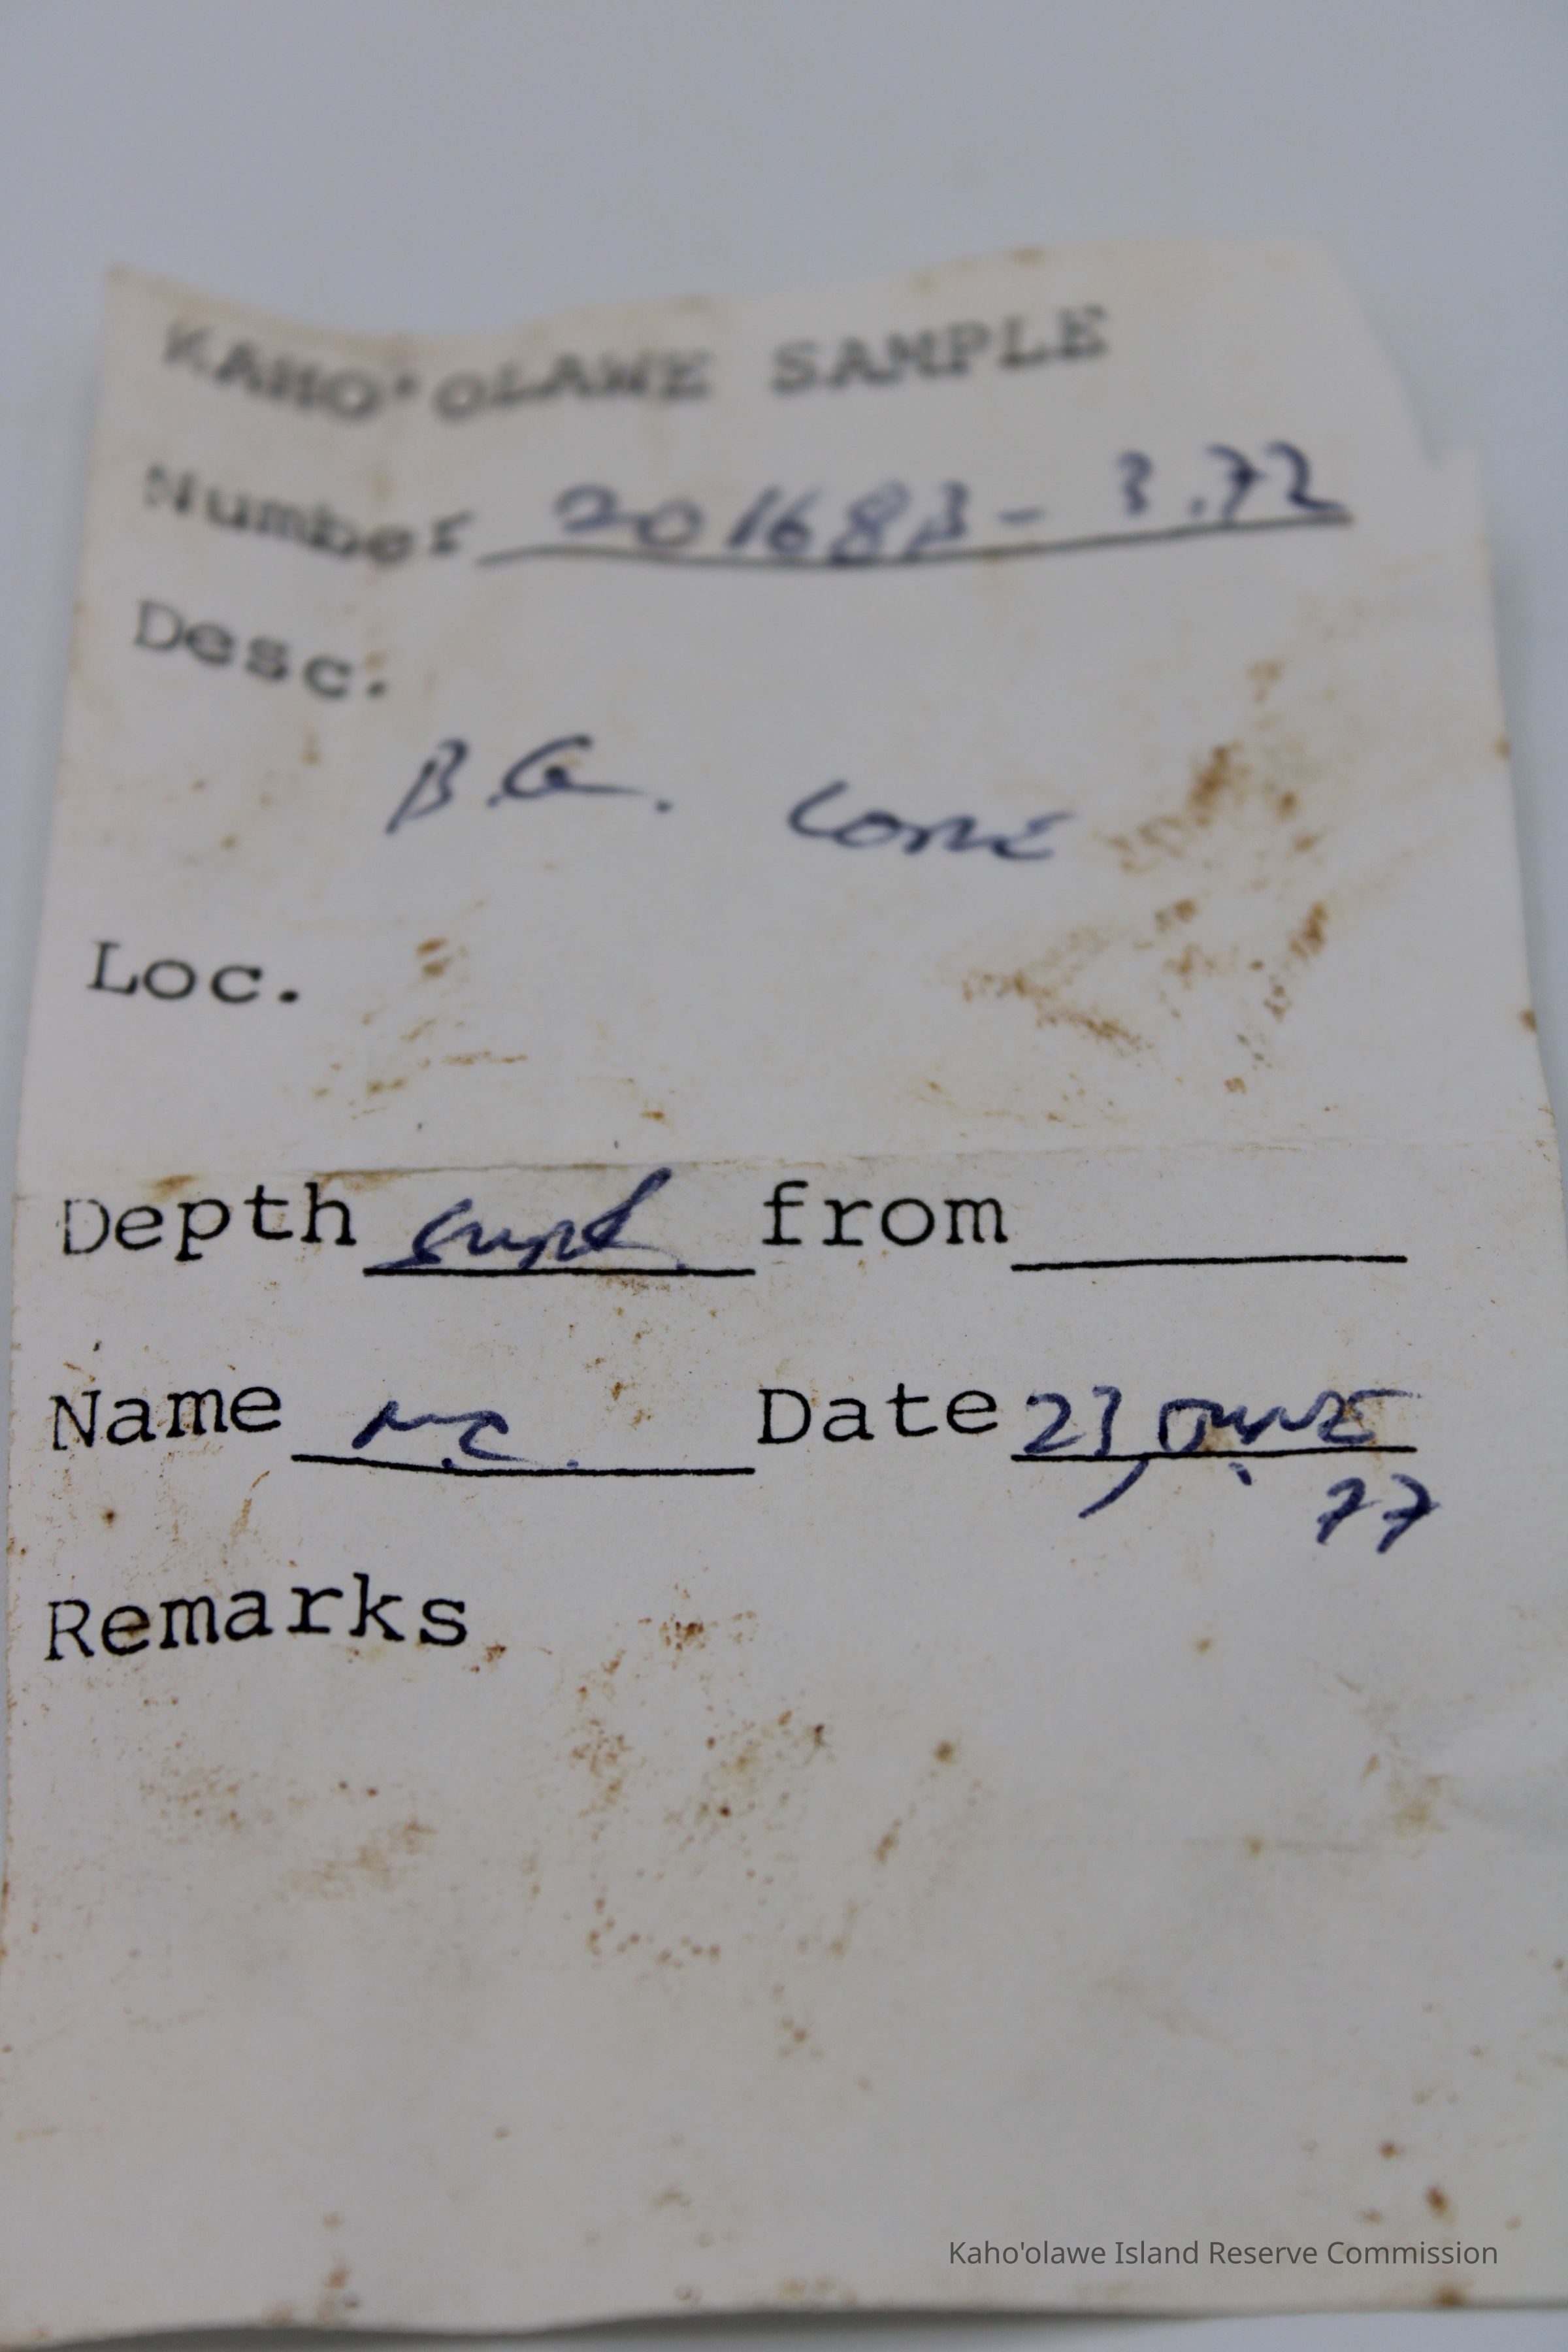 KAHO'OLAWE SAMPLE
Number 20168B - 3.72
Desc.
B.G. CORE
Loc.
Depth surf. from
Name Date 23 JUNE
77
Remarks
Kaho'olawe Island Reserve Commission